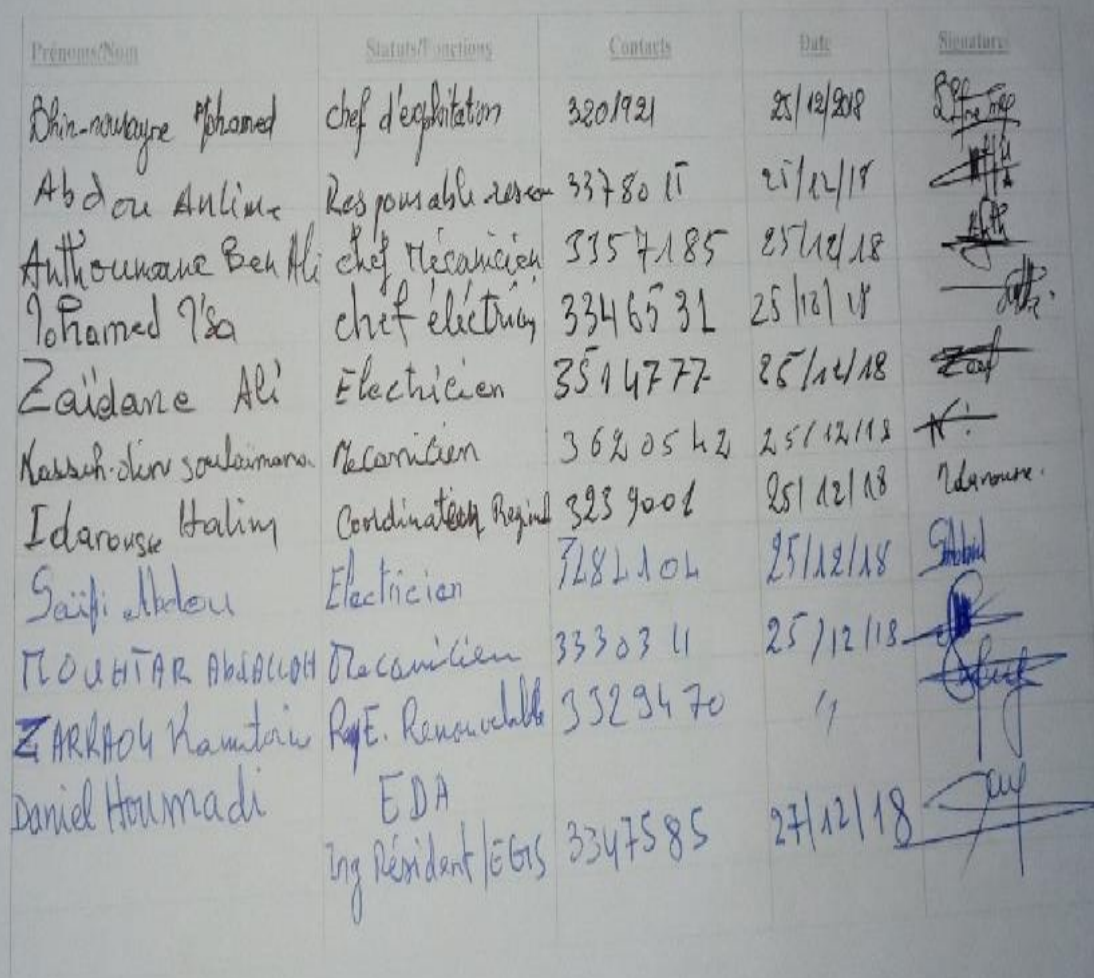 Prénoms/Nom Statuts/Fonctions Contacts Date Signature
Dhin-nourayne Mohamed chef d'exploitation 3201921 25/12/2018
Abdou Anlime Responsable 33780 25/12/18
Anthoumane Ben Ali chef Mécanicien 3357185 25/12/18
Mohamed Issa chef électricien 3346531 25/12/18
Zaïdane Ali Electricien 3514777 25/12/18
Nassuh-dine soulaimana Mecanicien 3620542 25/12/18
Idarousse Halim Coordinateur Regional 3239001 25/12/18 Idarousse.
Saïfi Abdou Electricien 25/12/18
MOUHTAR AbdALLAH Mecanicien 3330311 25/12/18
ZARKAOU Kamitoine E. Renouvelable 3329470 //
Daniel Houmadi EDA
Ing Résident/EGIS 3347585 27/12/18